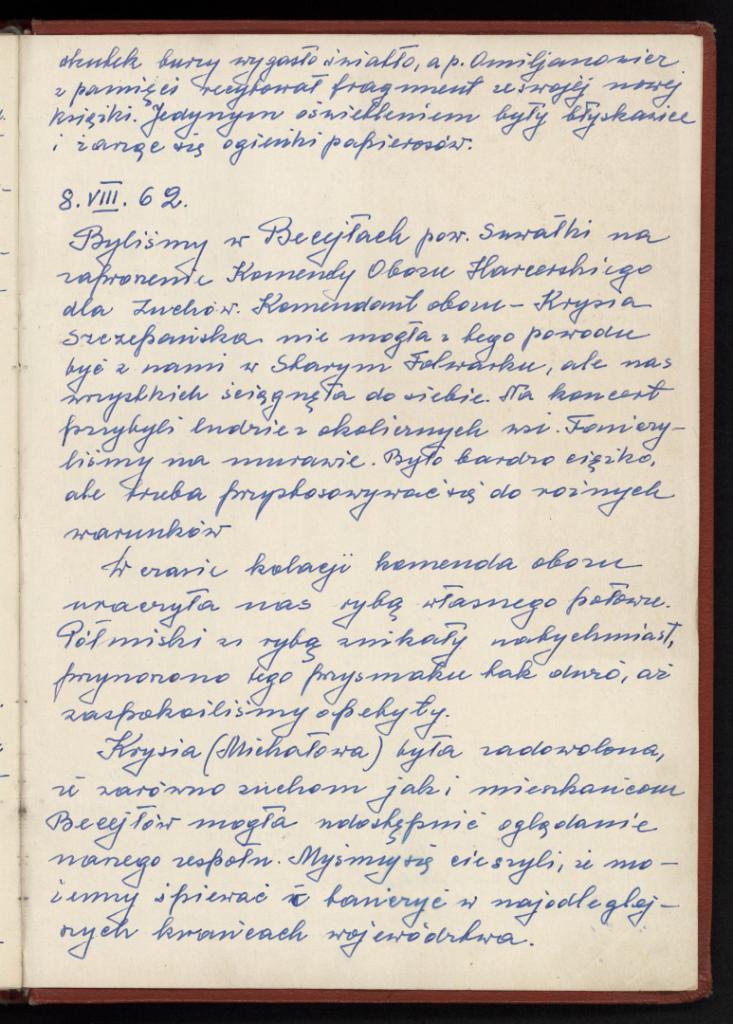 skutek burzy wygasło światło, a p. Omiljanowicz
z pamięci recytował fragment ze swojej nowej
książki. Jedynym oświetleniem były błyskawice
i żarzące się ogieńki papierosów.
8.VIII.62.
Byliśmy w Becejłach pow. Suwałki na
zaproszenie Komendy Obozu Harcerskiego
dla Zuchów. Komendant obozu - Krysia
Szczepańska nie mogła z tego powodu
być z nami w Starym Folwarku, ale nas
wszystkich ściągnęła do siebie. Na koncert
przybyli ludzie z okolicznych wsi. Tańczy-
liśmy na murawie. Było bardzo ciężko,
ale trzeba przystosowywać się do różnych
warunków
W czasie kolacji komenda obozu
uraczyła nas rybą własnego połowu.
Półmiski ze rybą znikały natychmiast,
przynoszono tego przysmaku tak dużo, aż
zaspokoiliśmy apetyty.
Krysia (Michałowa) była zadowolona,
że zarówno zuchom jak i mieszkańcom
Becejłów mogła udostępnić oglądanie
naszego zespołu. Myśmy się cieszyli, że mo-
żemy śpiewać i tańczyć w najodleglej-
szych krańcach województwa.